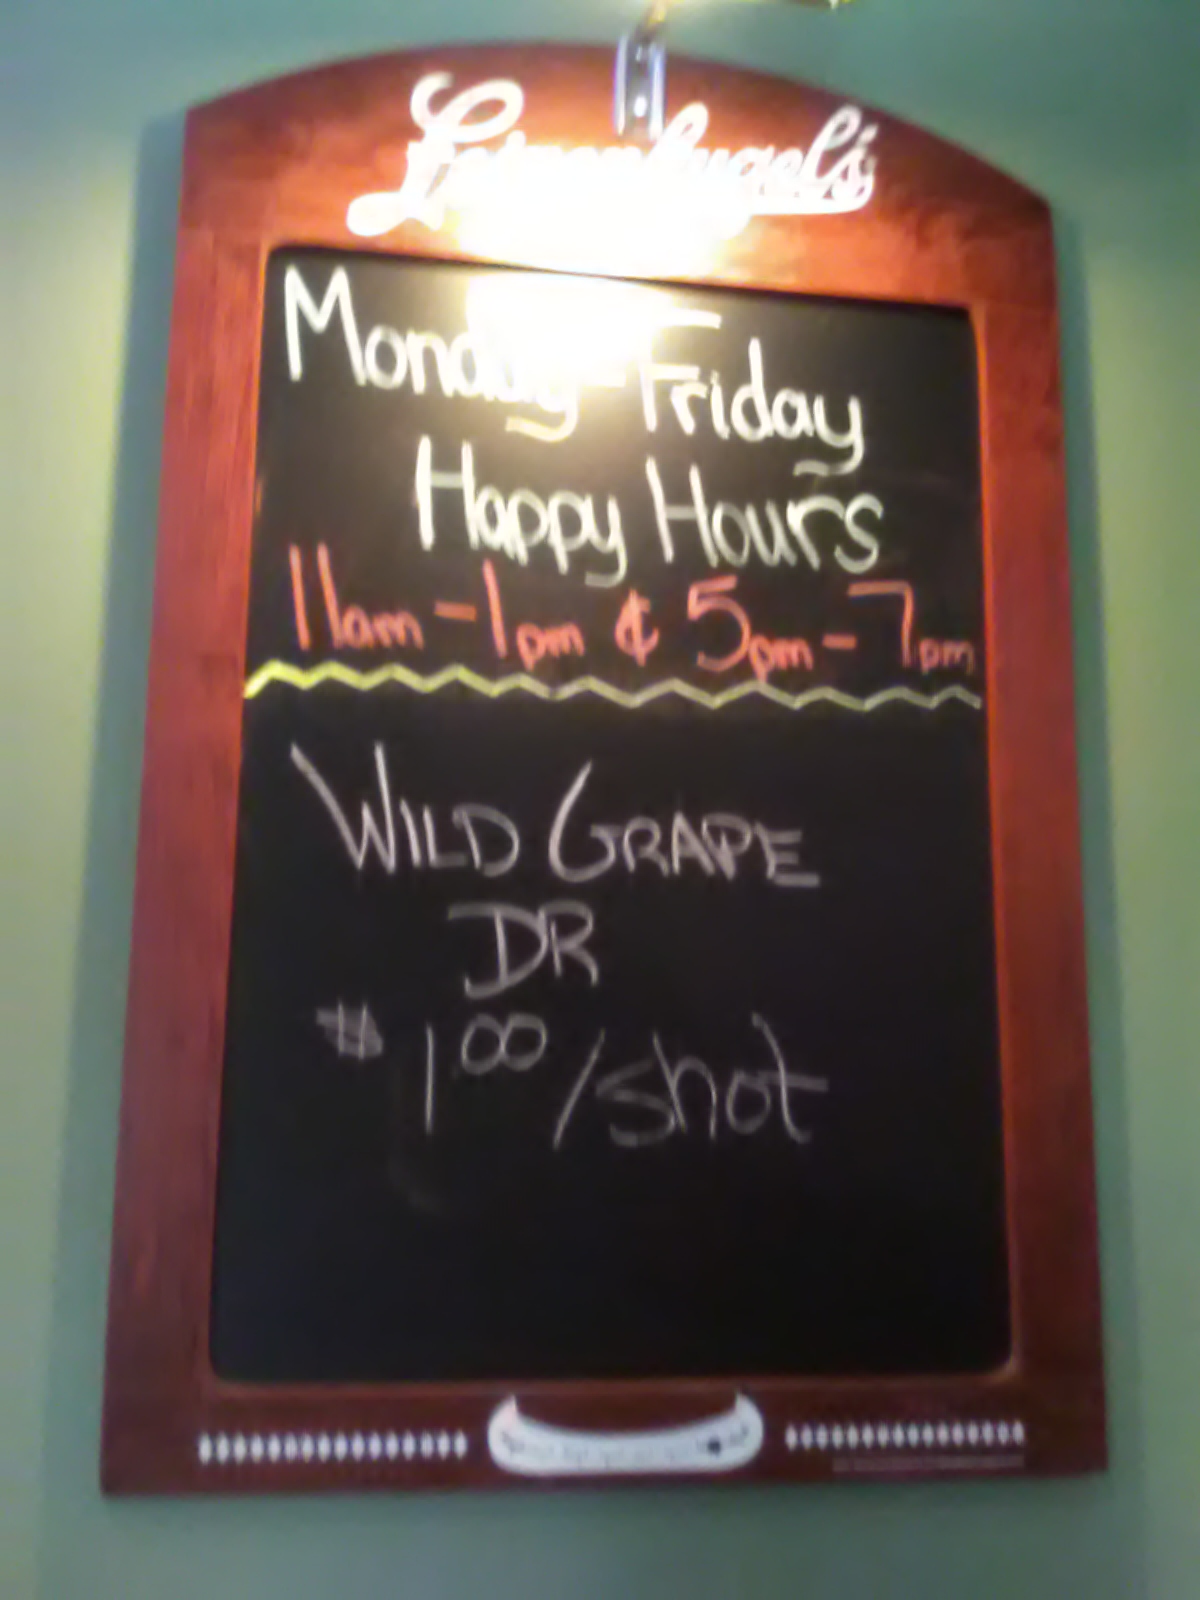 Leinenkugel's
Monday-Friday
Happy Hours
11am-1pm & 5pm-7pm
WILD GRAPE
DR
$1.00/shot